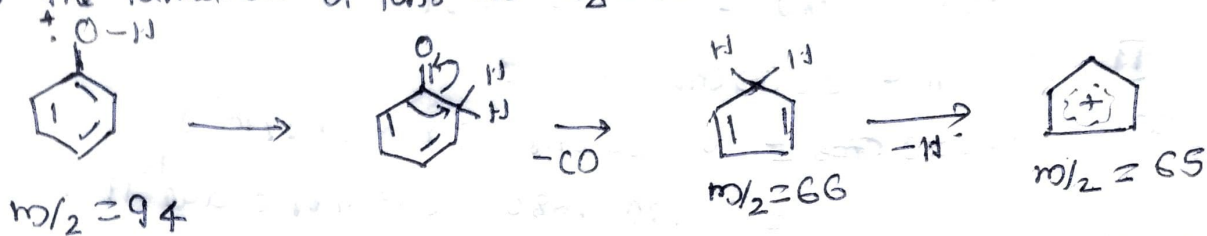 O-H
O
H
H
H H
+
-CO
-H·
m/z = 94
m/z = 66
m/z = 65